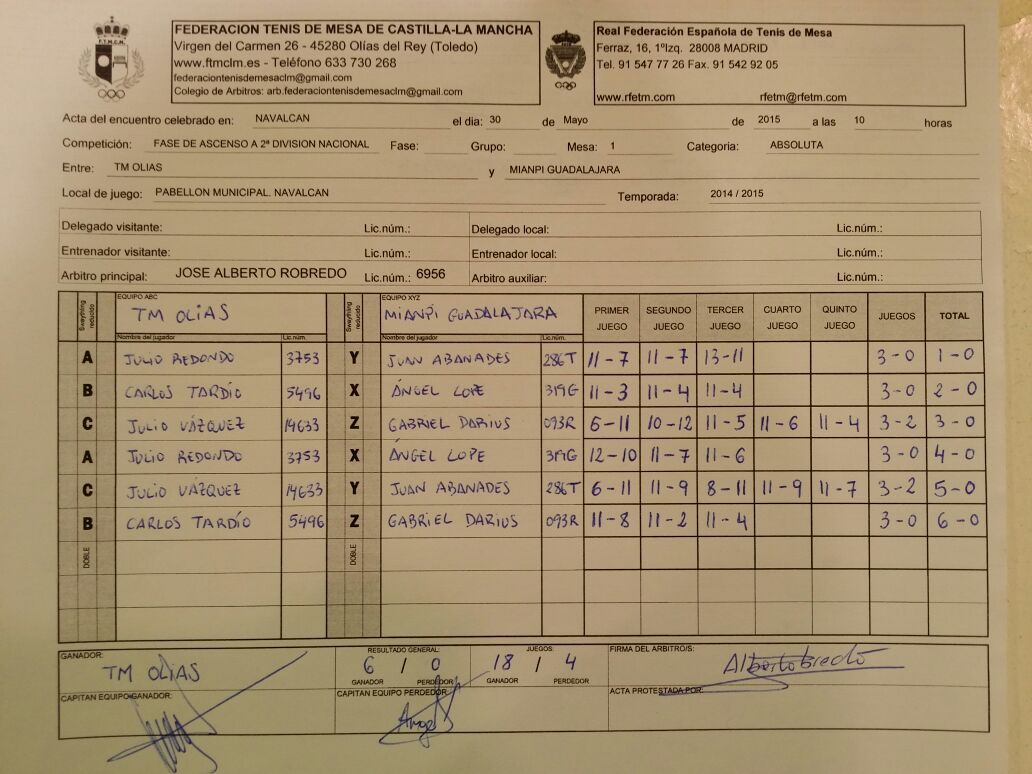 FEDERACION TENIS DE MESA DE CASTILLA-LA MANCHA
Virgen del Carmen 26 - 45280 Olías del Rey (Toledo)
www.ftmclm.es - Teléfono 633 730 268
federaciontenisdemesaclm@gmail.com
Colegio de Arbitros: arb.federaciontenisdemesaclm@gmail.com
F.T.M.C.M.
Real Federación Española de Tenis de Mesa
Ferraz, 16, 1ºIzq. 28008 MADRID
Tel. 91 547 77 26 Fax. 91 542 92 05
www.rfetm.com rfetm@rfetm.com
Acta del encuentro celebrado en: NAVALCAN el dia: 30 de Mayo de 2015 a las 10 horas
Competición: FASE DE ASCENSO A 2ª DIVISION NACIONAL Fase: Grupo: Mesa: 1 Categoria: ABSOLUTA
Entre: TM OLIAS y MIANPI GUADALAJARA
Local de juego: PABELLON MUNICIPAL. NAVALCAN Temporada: 2014 / 2015
Delegado visitante: Lic.núm.: Delegado local: Lic.núm.:
Entrenador visitante: Lic.núm.: Entrenador local: Lic.núm.:
Arbitro principal: JOSE ALBERTO ROBREDO Lic.núm.: 6956 Arbitro auxiliar: Lic.núm.:
Swaythling reducido EQUIPO ABC TM OLIAS Swaythling reducido EQUIPO XYZ MIANPI GUADALAJARA PRIMER JUEGO SEGUNDO JUEGO TERCER JUEGO CUARTO JUEGO QUINTO JUEGO JUEGOS TOTAL
Nombre del jugador Lic.núm. Nombre del jugador Lic.núm.
A JULIO REDONDO 3753 Y JUAN ABANADES 286T 11-7 11-7 13-11 3-0 1-0
B CARLOS TARDÍO 5496 X ÁNGEL LOPE 319G 11-3 11-4 11-4 3-0 2-0
C JULIO VÁZQUEZ 14633 Z GABRIEL DARIUS 093R 6-11 10-12 11-5 11-6 11-4 3-2 3-0
A JULIO REDONDO 3753 X ÁNGEL LOPE 319G 12-10 11-7 11-6 3-0 4-0
C JULIO VÁZQUEZ 14633 Y JUAN ABANADES 286T 6-11 11-9 8-11 11-9 11-7 3-2 5-0
B CARLOS TARDÍO 5496 Z GABRIEL DARIUS 093R 11-8 11-2 11-4 3-0 6-0
DOBLE DOBLE
GANADOR: TM OLIAS RESULTADO GENERAL: 6 / 0 JUEGOS: 18 / 4 FIRMA DEL ARBITRO/S:
GANADOR PERDEDOR GANADOR PERDEDOR
CAPITAN EQUIPO GANADOR: CAPITAN EQUIPO PERDEDOR: ACTA PROTESTADA POR: